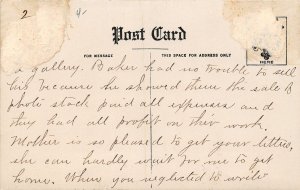 2 4
Post Card
FOR MESSAGE THIS SPACE FOR ADDRESS ONLY
HERE
a gallery. Baker had no trouble to sell
his because he showed them the sale &
photo stock paid all expenses and
they had all profit on their work.
Mother is so pleased to get your letters,
she can hardly wait for me to get
home. When you neglected to write